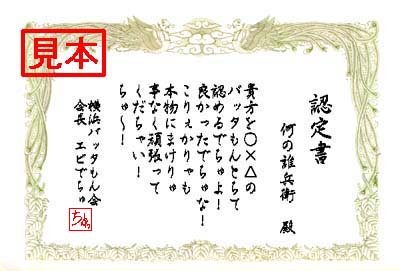 見本
認定書
何の誰兵衛 殿
貴方を○×△の
バッタもんとちて
認めるでちゅよ！
良かったでちゅな！
こりぇかりゃも
本物にまけりゅ
事なく頑張って
くだちゃい！
ちゅ～！
横浜バッタもん会
会長 エビでちゅ